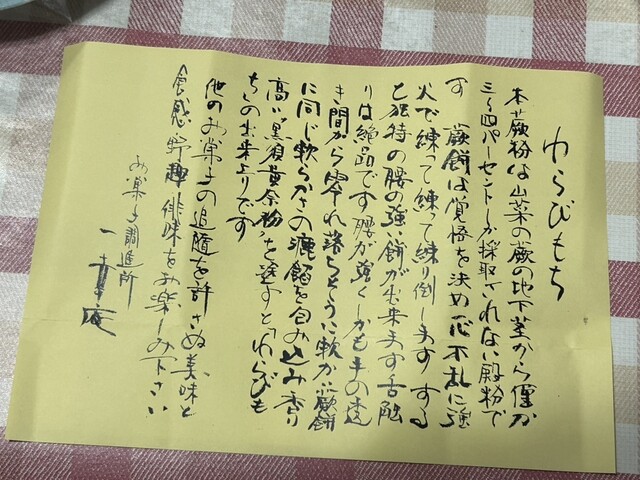 わらびもち
本蕨粉は山菜の蕨の地下茎から僅か
三〜四パーセントしか採取されない殿粉で
す 蕨餅は覚悟を決め一心不乱に強
火で練って練って練り倒します する
と独特の腰の強い餅が出来ます舌触
りは絶品です腰が強くしかも手の透
き間から零れ落ちそうに軟か 蕨餅
に同じ軟らかさの漉餡を包み込み香り
高い“黒須黄奈粉”を塗すと「わらびも
ち」の出来上りです
他のお菓子の追随を許さぬ美味と
食感 野趣 俳味をお楽しみ下さい
お菓子調進所
一幸庵